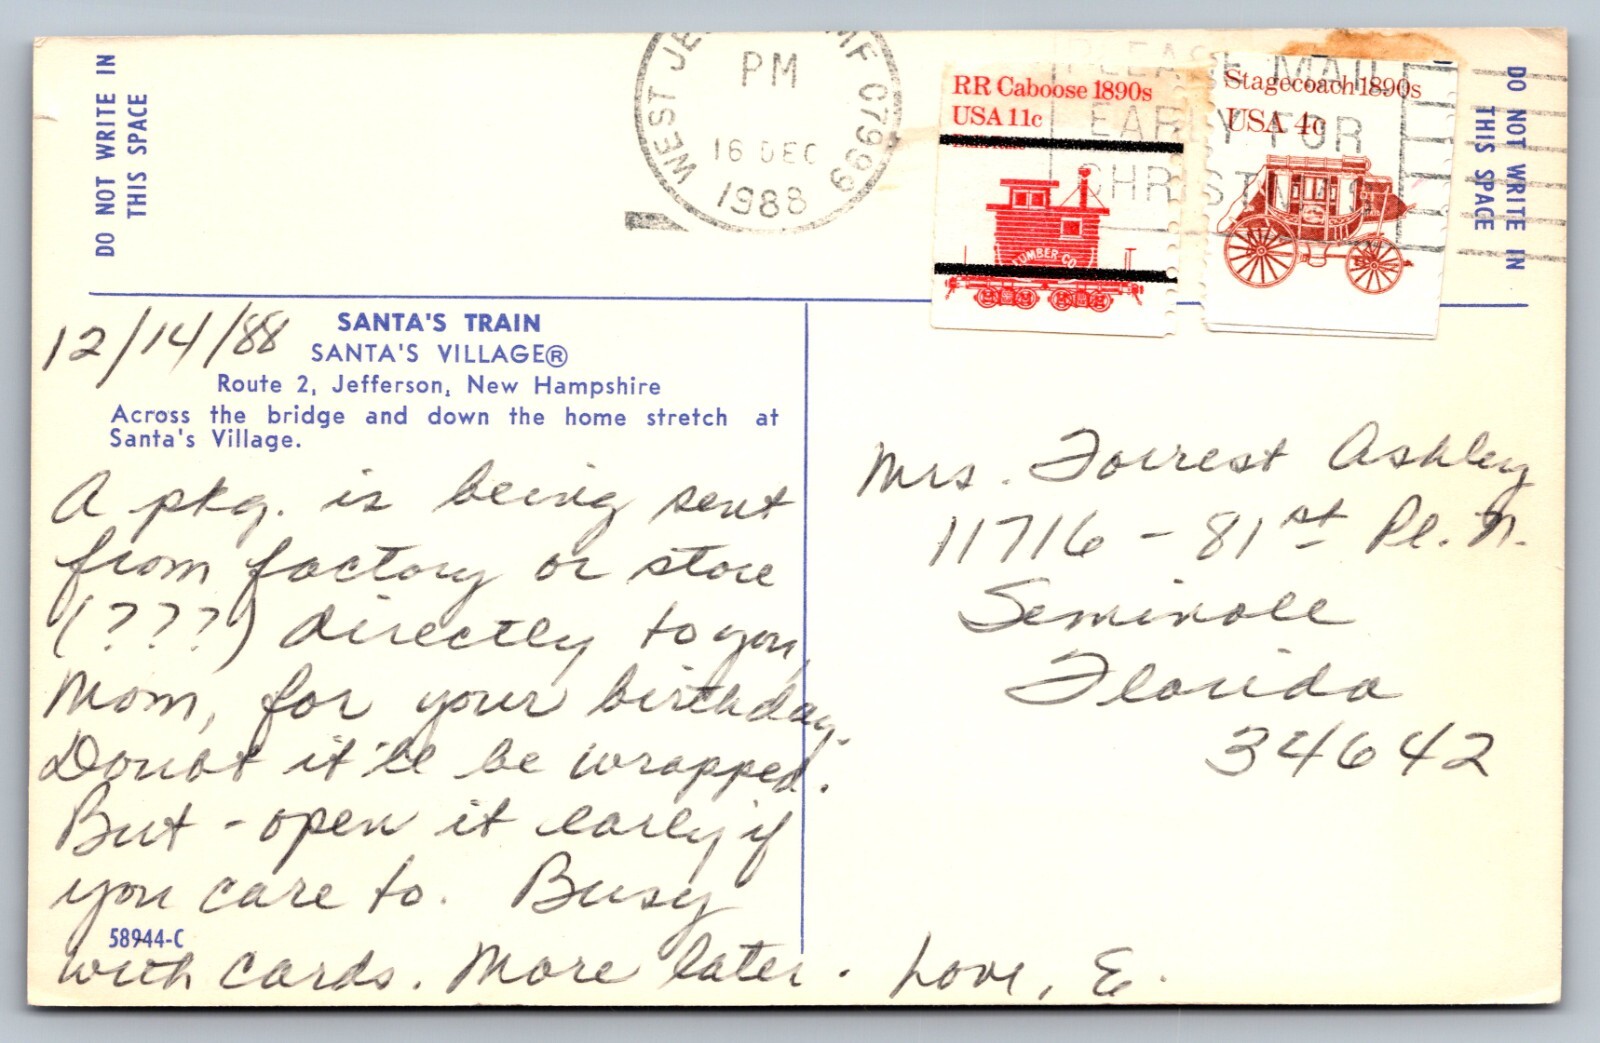 DO NOT WRITE IN
THIS SPACE
WEST JE MF 07999
PM
16 DEC
1988
PLEASE MAIL
EARLY FOR
CHRISTMAS
RR Caboose 1890s
USA 11c
LUMBER CO
Stagecoach 1890s
USA 4c
DO NOT WRITE IN
THIS SPACE
12/14/88
SANTA'S TRAIN
SANTA'S VILLAGE®
Route 2, Jefferson, New Hampshire
Across the bridge and down the home stretch at
Santa's Village.
A pkg. is being sent
from factory or store
(???) directly to you,
Mom, for your birthday.
Doubt it'll be wrapped.
But - open it early if
you care to. Busy
58944-C
with cards. More later. Love, E.
Mrs. Forrest Ashley
11716 - 81st Pl. N.
Seminole
Florida
34642